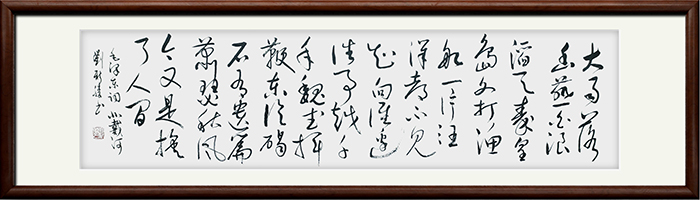 大雨落
幽燕白浪
滔天秦皇
岛外打渔
船一片汪
洋都不见
知向谁边
往事越千
年魏武挥
鞭东临碣
石有遗篇
萧瑟秋风
今又是换
了人间
毛泽东词北戴河
劉书